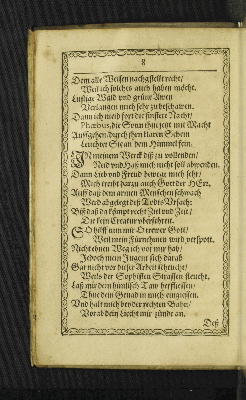 8
Dem alle Weisen nachgstellt recht/
Weil ich solches auch haben möcht.
Lustige Wäld vnd grüne Awen
Verlangen mich sehr zu beschawen.
Dann ich meid fort die finstere Nacht/
Phœbus, die Sonn thut jetzt mit Macht
Auffgehen/durch jhen klaren Schein
Leuchtet Sie an dem Himmel fein.
IN meinem Werck diß zu vollenden/
Neid vnd Haß mich nicht soll abwenden.
Dann Lieb vnd Frewd bewegt mich sehr/
Mich treibt darzu auch Gott der HErr.
Auff daß dem armen Menschen schwach
Werd abgelegt deß Todts Vrsach:
Biß daß da kömpt recht Ziel vnd Zeit/
Die kein Creatur vberschreit.
SO hilff nun mir O trewer Gott/
Weil mein Fürnehmen wird verspott.
Nicht eben Weg ich vor mir hab/
Jedoch mein Jugent sich darab
Gar nicht vor dieser Arbeit schewcht/
Weils der Sophisten Strassen fleucht.
Laß mir dein himlisch Taw herfliessen/
Thue dein Genad in mich eingiessen.
Vnd halt mich bey der rechten Bahn/
Vorab dein Liecht mir zünde an.
Deß